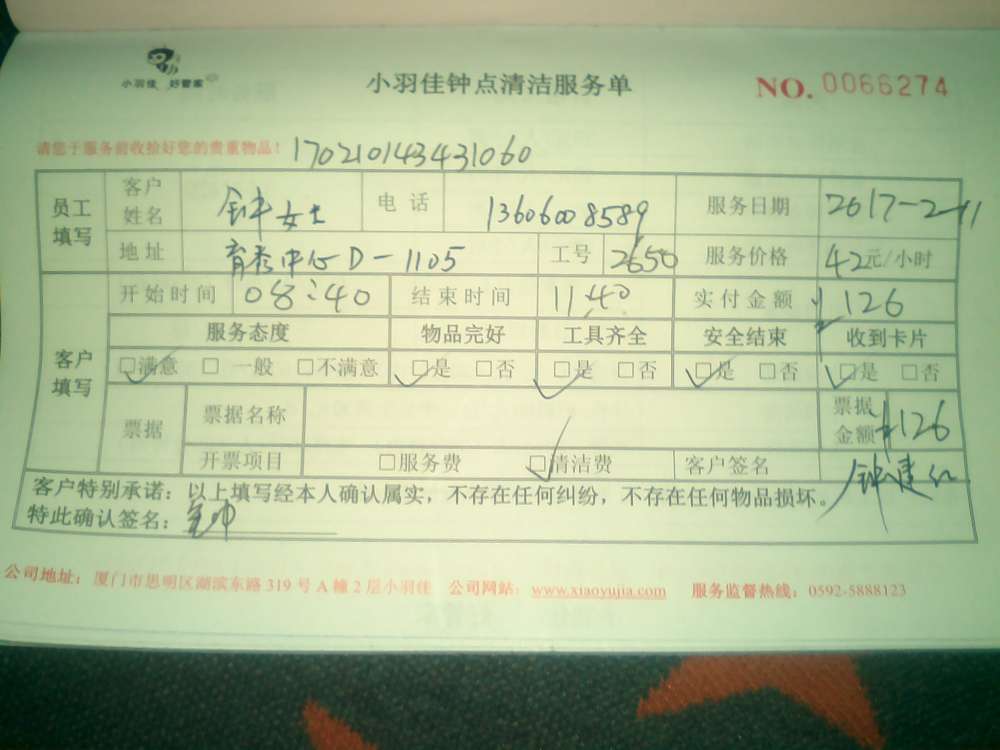 小羽佳 好管家
小羽佳钟点清洁服务单
NO. 0066274
请您于服务前收拾好您的贵重物品! 170210143431060
员工填写 客户姓名 钟女士 电话 13606008589 服务日期 2017-2-11
地址 育秀中心D-1105 工号 2650 服务价格 42元/小时
客户填写 开始时间 08:40 结束时间 11:40 实付金额 ¥126
服务态度 物品完好 工具齐全 安全结束 收到卡片
☑满意 □一般 □不满意 ☑是 □否 ☑是 □否 ☑是 □否 ☑是 □否
票据 票据名称 票据金额 ¥126
开票项目 □服务费 ☑清洁费 客户签名 钟建红
客户特别承诺:以上填写经本人确认属实,不存在任何纠纷,不存在任何物品损坏。
特此确认签名:
公司地址:厦门市思明区湖滨东路319号A幢2层小羽佳 公司网站:www.xiaoyujia.com 服务监督热线:0592-5888123